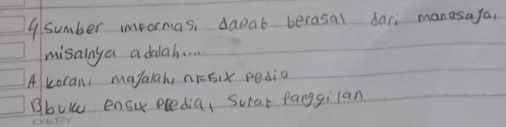 4 sumber informasi dapat berasal dari manasaja,
misalnya adalah....
A koran, majalah, nksix pedia
B buku ensix pedia, surat panggilan